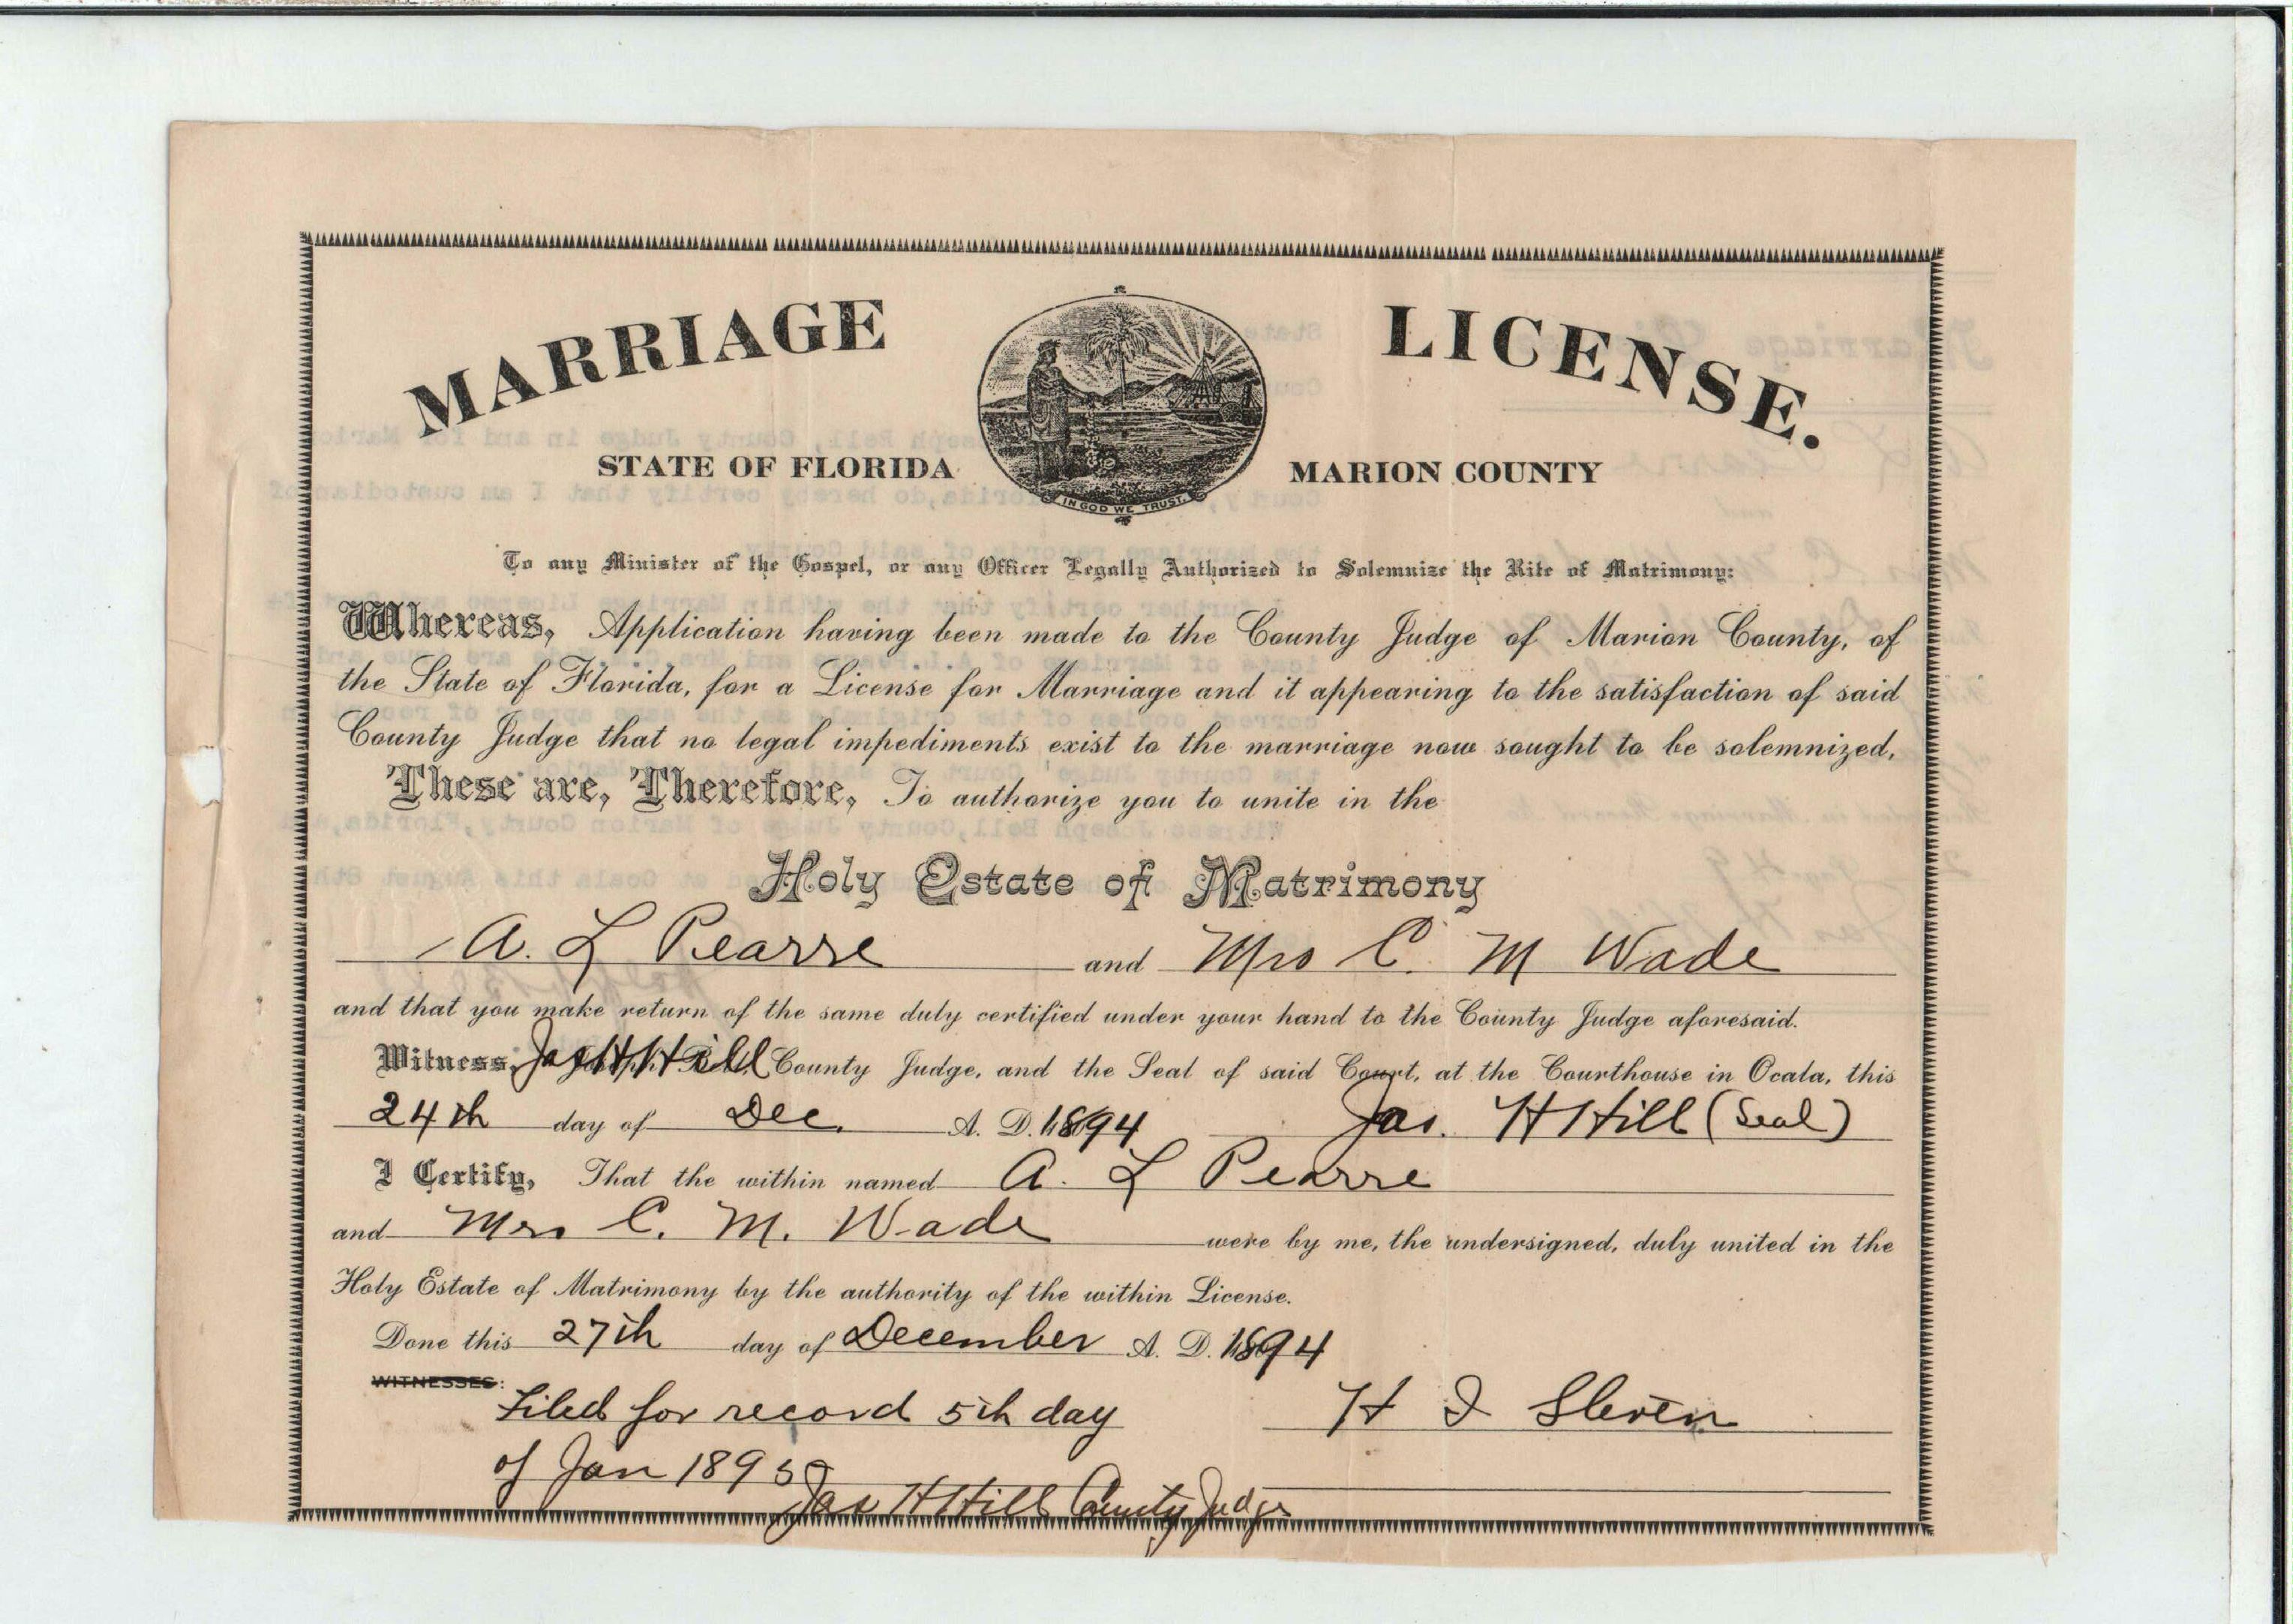 MARRIAGE LICENSE.
STATE OF FLORIDA MARION COUNTY
IN GOD WE TRUST.
To any Minister of the Gospel, or any Officer Legally Authorized to Solemnize the Rite of Matrimony:
Whereas, Application having been made to the County Judge of Marion County, of
the State of Florida, for a License for Marriage and it appearing to the satisfaction of said
County Judge that no legal impediments exist to the marriage now sought to be solemnized,
These are, Therefore, To authorize you to unite in the
Holy Estate of Matrimony
A. L Pearre and Mrs C. M Wade
and that you make return of the same duly certified under your hand to the County Judge aforesaid.
Witness, Jas H Hill County Judge, and the Seal of said Court, at the Courthouse in Ocala, this
24th day of Dec. A. D. 1894 Jas. H Hill (Seal)
I Certify, That the within named A. L Pearre
and Mrs C. M. Wade were by me, the undersigned, duly united in the
Holy Estate of Matrimony by the authority of the within License.
Done this 27th day of December A. D. 1894
WITNESSES:
Filed for record 5th day H I
of Jan 1895
Jas H Hill County Judge